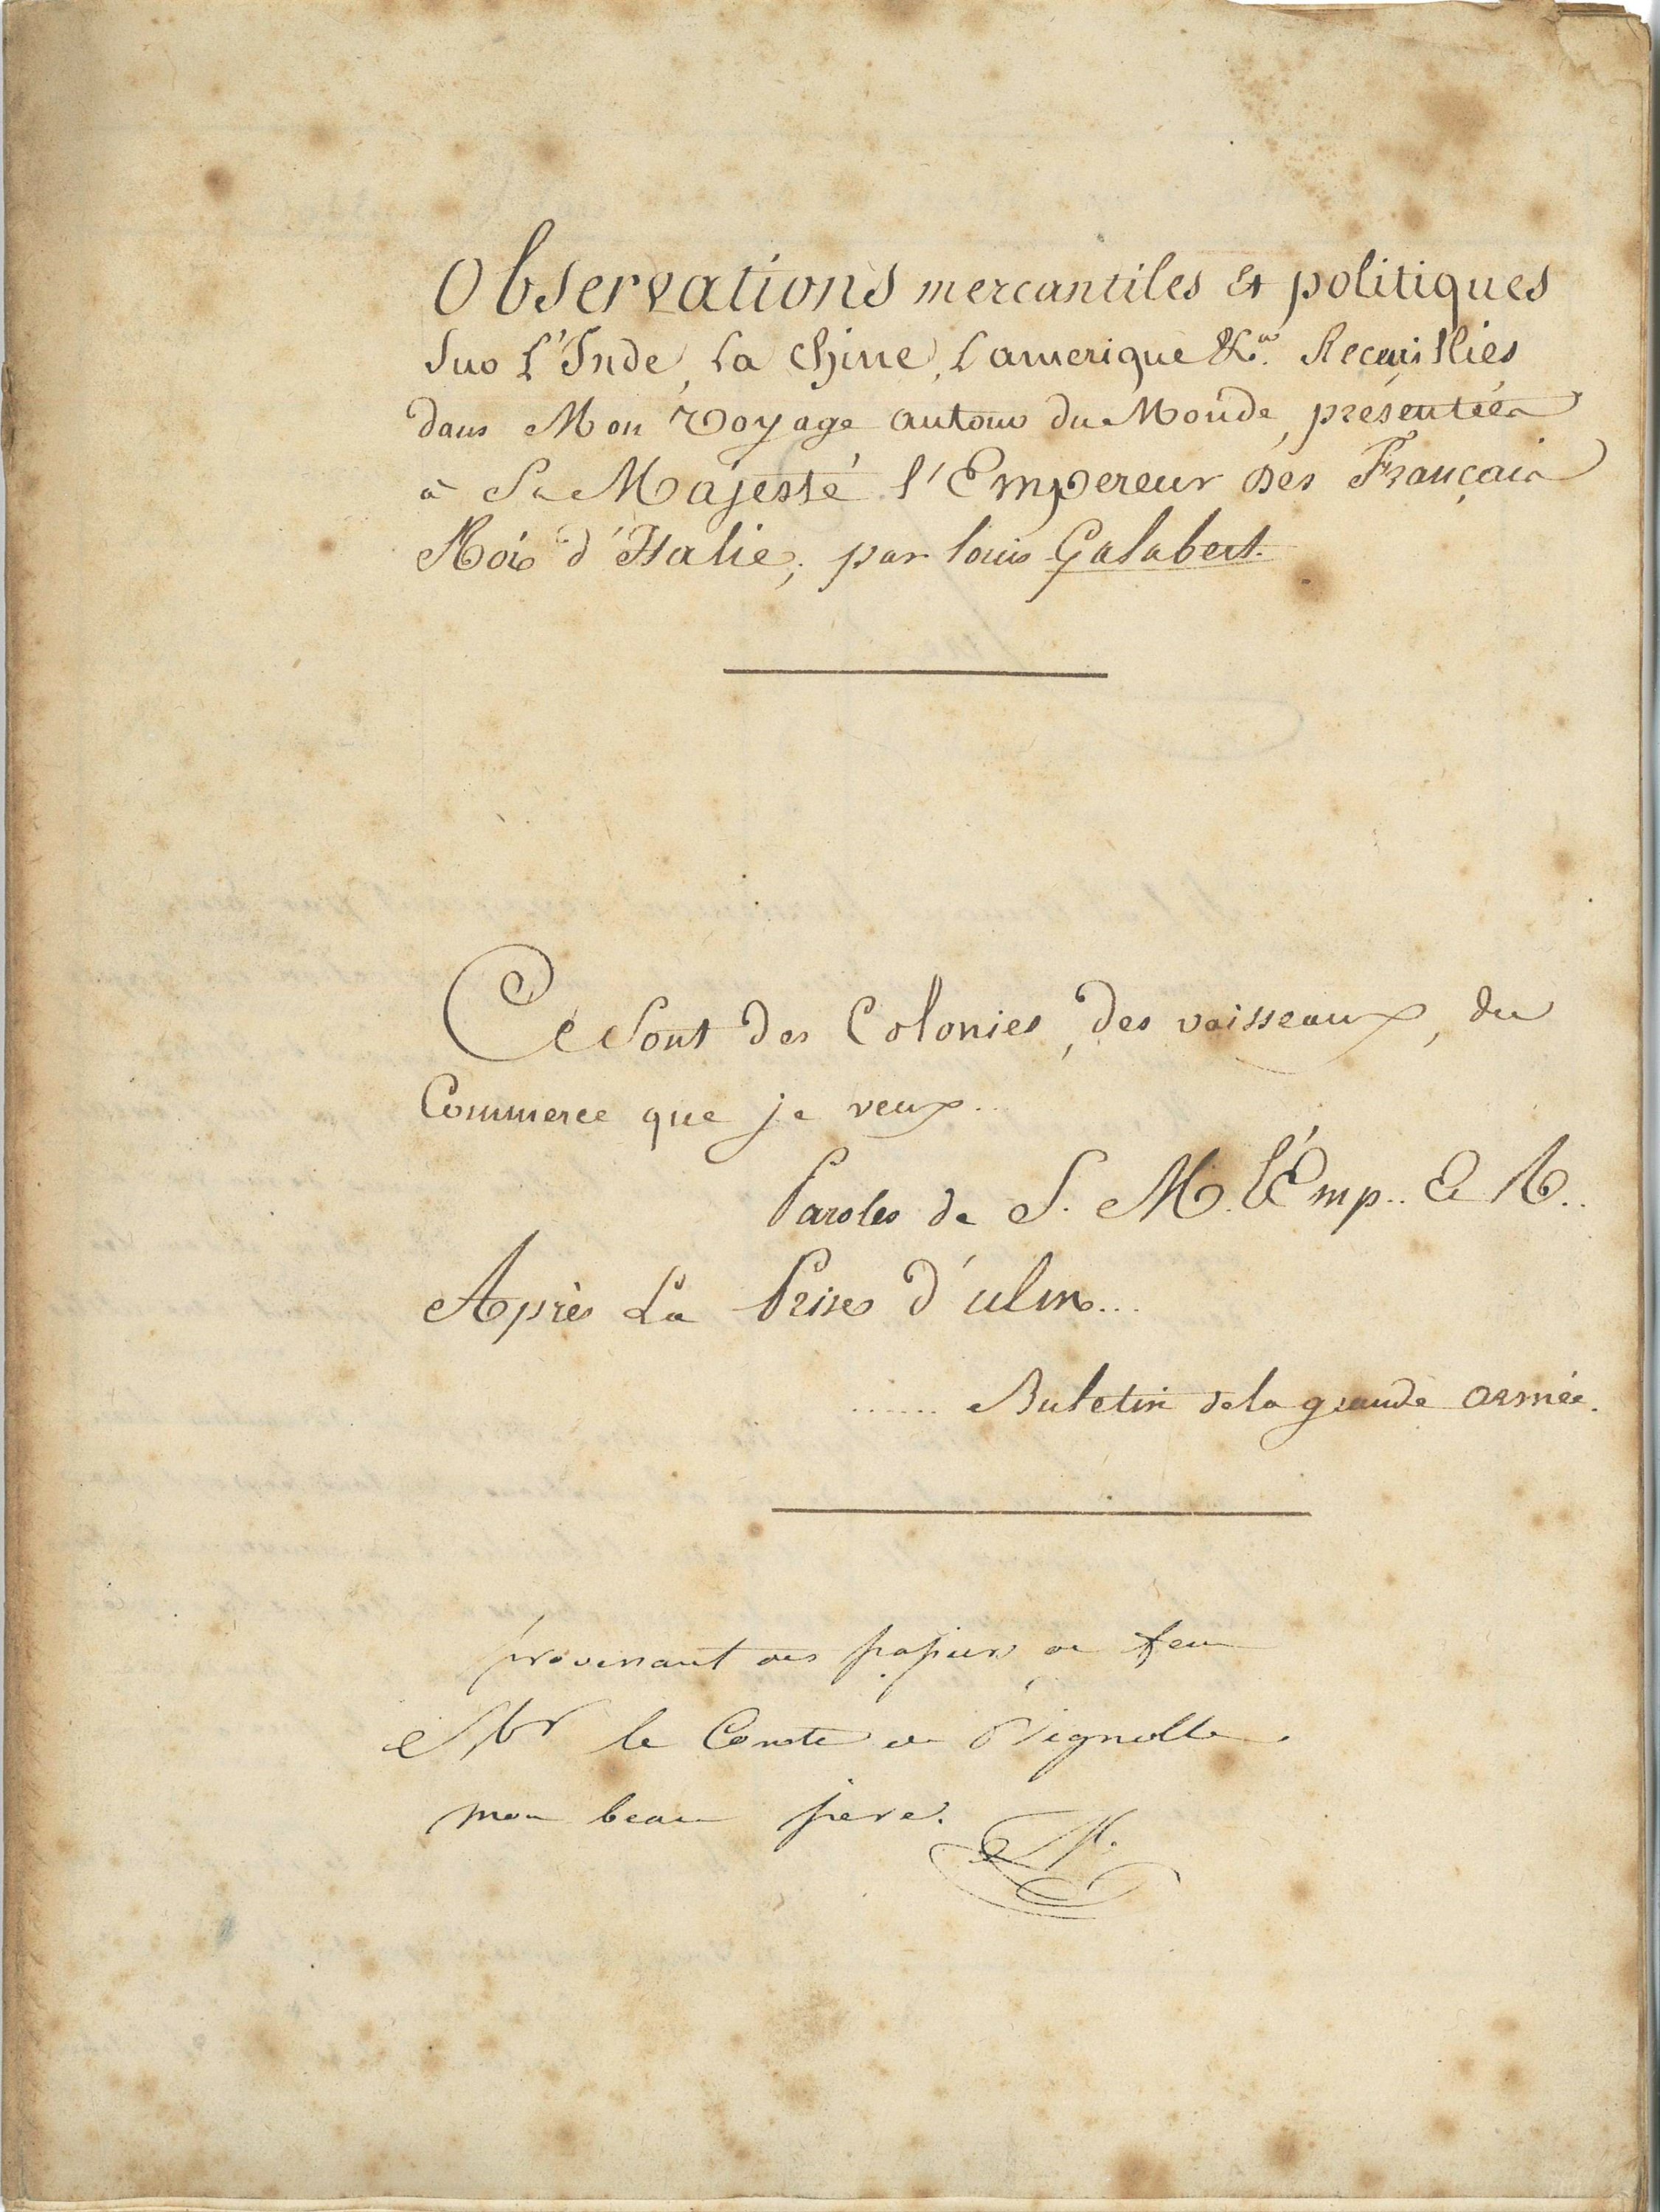 Observations mercantiles et politiques
Sur L'Inde, La Chine, L'amerique &ca. Recueillies
dans Mon Voyage autour du Monde, présentées
à Sa Majesté l'Empereur des Français
Roi d'Italie, par louis Galabert.
Ce Sont des Colonies, des vaisseaux, du
Commerce que je veux..
Paroles de S. M. l'Emp.. & R..
Après La Prise d'ulm...
...... Buletin de la grande armée.
provenant des papiers de feu
Mr le Comte de Vignolle.
mon beau pere.